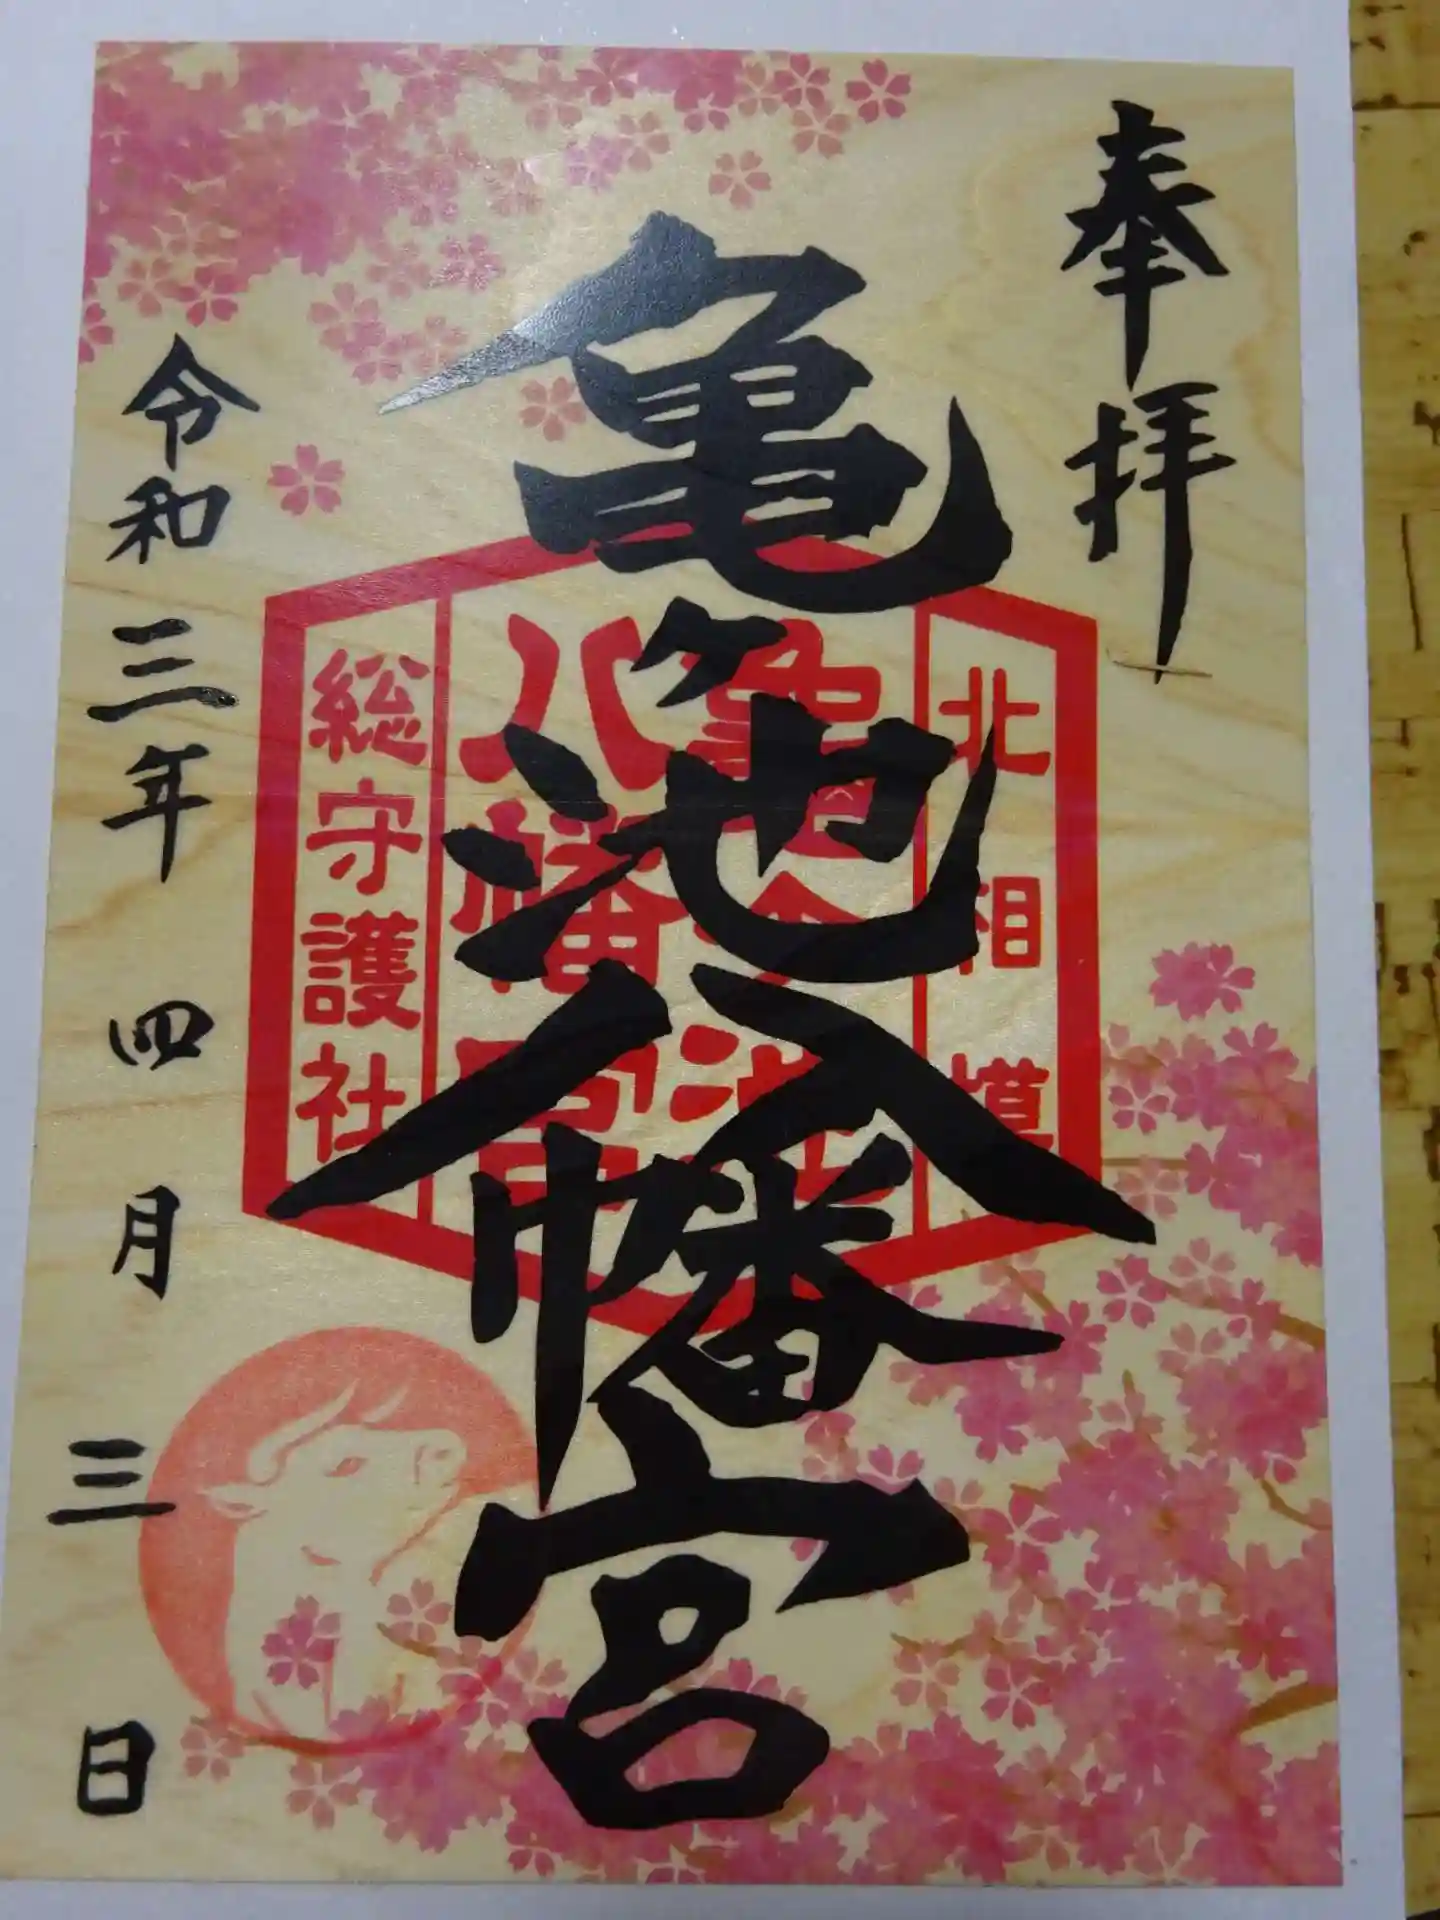 奉拝
北相模
亀ヶ池八幡宮
亀ヶ池
八幡宮
総守護社
令和三年 四月 三日